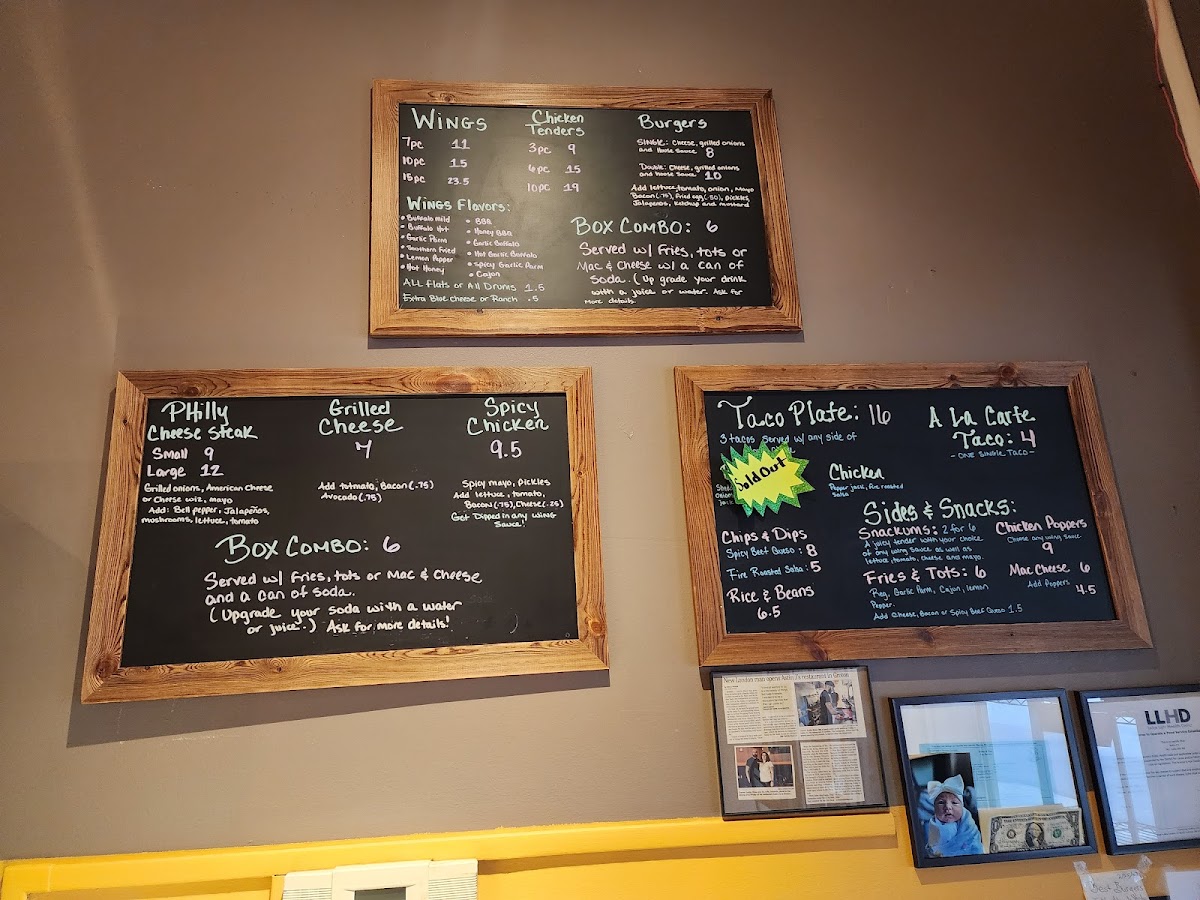 Wings
7pc 11
10pc 15
15pc 23.5
Wings Flavors:
• Buffalo Mild
• Buffalo Hot
• Garlic Parm
• Southern Fried
• Lemon Pepper
• Hot Honey
• BBQ
• Honey BBQ
• Garlic Buffalo
• Hot Garlic Buffalo
• Spicy Garlic Parm
• Cajon
All Flats or All Drums 1.5
Extra Blue cheese or Ranch .5
Chicken
Tenders
3pc 9
6pc 15
10pc 19
Burgers
Single: Cheese, grilled onions
and House Sauce 8
Double: Cheese, grilled onions
and House Sauce 10
Add lettuce, tomato, onion, Mayo
Bacon (.75), Fried egg (.50), pickles,
Jalapenos, Ketchup and mustard
Box Combo: 6
Served w/ Fries, tots or
Mac & Cheese w/ a can of
Soda. (Up grade your drink
with a juice or water. Ask for
more details.
Philly
Cheese Steak
Small 9
Large 12
Grilled onions, American Cheese
or Cheese wiz, mayo
Add: Bell pepper, Jalapeños,
mushrooms, lettuce, tomato
Grilled
Cheese
7
Add totmato, Bacon (.75)
Avocado (.75)
Spicy
Chicken
9.5
Spicy mayo, pickles
Add lettuce, tomato,
Bacon (.75), Cheese (.25)
Get Dipped in any wing
Sauce!
Box Combo: 6
Served w/ Fries, tots or Mac & Cheese
and a can of soda.
(Upgrade your soda with a water
or juice.) Ask for more details!
Taco Plate: 16
3 tacos served w/ any side of
Sold Out
Chicken
Pepper jack, fire roasted
Salsa
A La Carte
Taco: 4
- One Single Taco -
Chips & Dips
Spicy Beef Queso: 8
Fire Roasted Salsa: 5
Rice & Beans
6.5
Sides & Snacks:
Snackums: 2 for 6
A juicy tender with your choice
of any wing sauce as well as
lettuce, tomato, cheese and mayo.
Fries & Tots: 6
Reg, Garlic Parm, Cajon, Lemon
Pepper.
Add Cheese, Bacon or Spicy Beef Queso 1.5
Chicken Poppers
Choose any wing Sauce
9
Mac Cheese 6
Add Poppers
4.5
New London man opens restaurant in Groton
LLHD